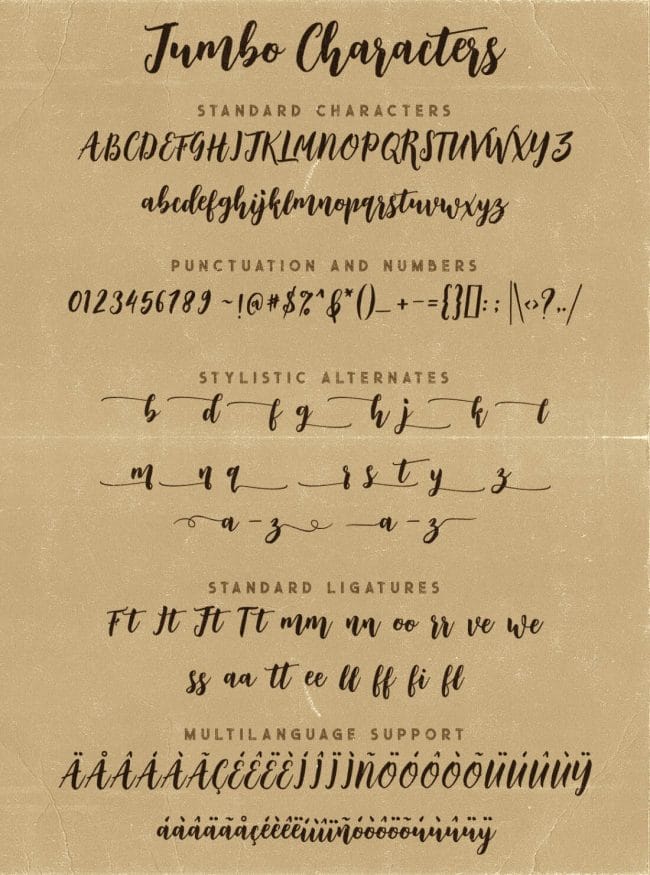 Jumbo Characters
STANDARD CHARACTERS
ABCDEFGHIJKLMNOPQRSTUVWXYZ
abcdefghijklmnopqrstuvwxyz
PUNCTUATION AND NUMBERS
0123456789 ~!@#$%^&*()_+-={}[]:;|\<>?,./
STYLISTIC ALTERNATES
b d f g h j k l
m n q r s t y z
a-z a-z
STANDARD LIGATURES
Ft It Jt Tt mm nn oo rr ve we
ss aa tt ee ll ff fi fl
MULTILANGUAGE SUPPORT
ÄÅÂÁÀÃÇÉÊËÈÍÎÏÌÑÖÓÔÒÕÜÚÛÙŸ
áàâäãåçéèêëíìîïñóòôöõúùûüÿ